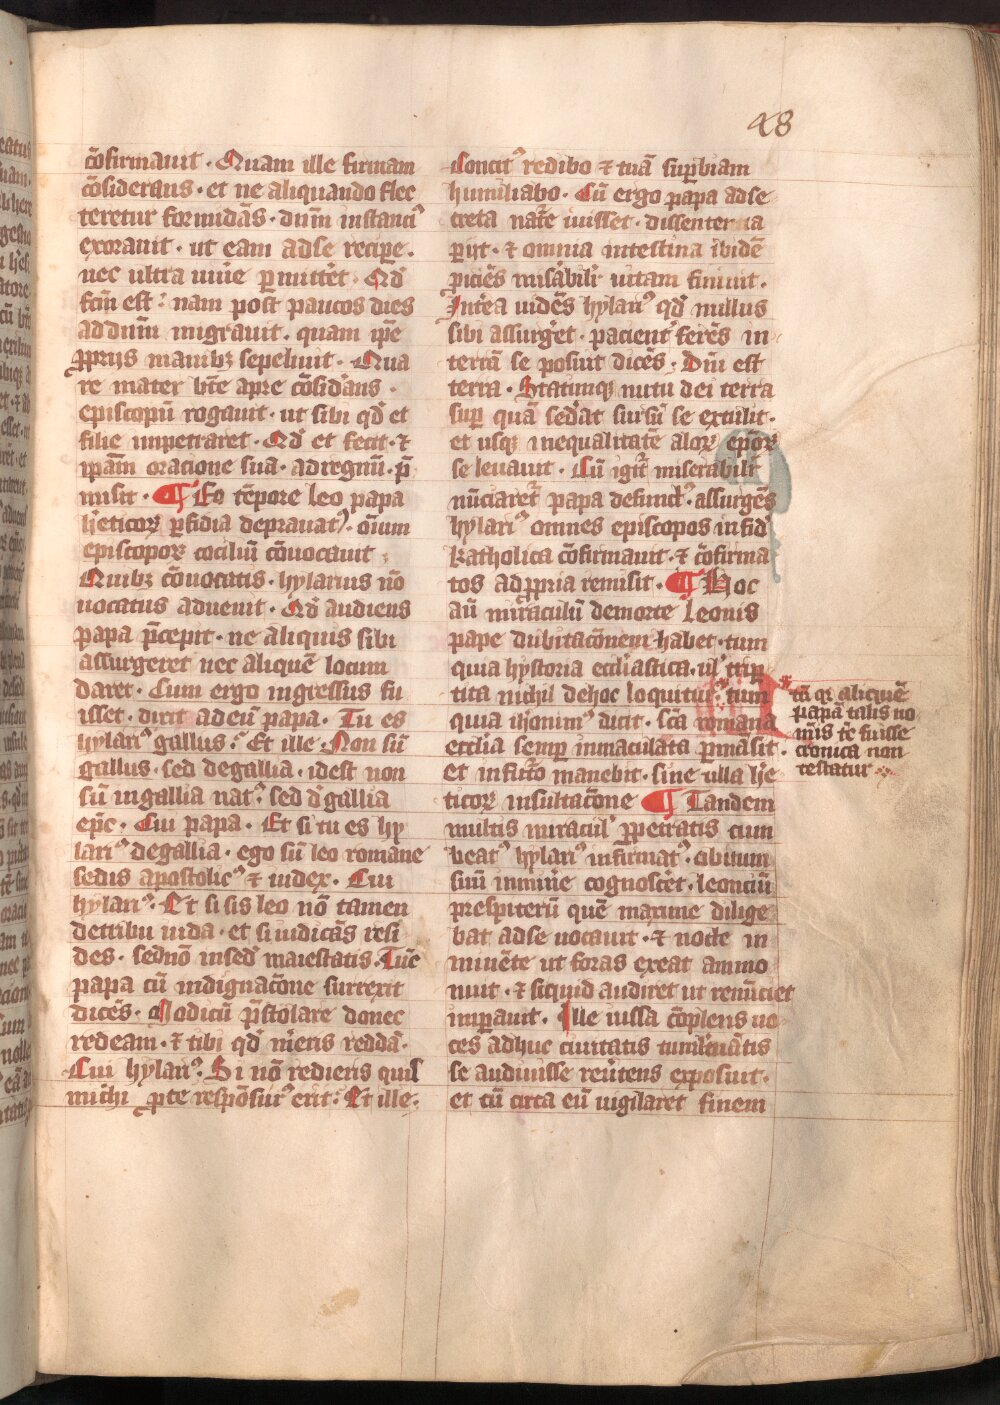 48
c̄ofirmauit · Quam ille firmam
c̄osiderans · et ne aliquando flec
teretur formidās · dūm instanciꝰ
exorauit · ut eam ad se recipe ·
nec ultra uiuē ꝑmittēt · Qd̄
fcm̄ est · nam post paucos dies
ad dūm migrauit · quam ip̄e
ꝓprijs manibꝫ sepeliuit · Qua
re mater bt̄e apre c̄osidans ·
episcopū rogauit · ut sibi qd̄ et
filie impetraret · Qd̄ et fecit · ⁊
ip̄am oracione sua · ad regnū · p̄
misit · ¶ Eo tēpore leo papa
h̄eticoꝝ ꝑfidia deprauatꝰ · ōium
episcopoꝝ cociliū c̄ouocauit ·
Quibꝫ c̄ouocatis · hylarius nō
uocatus aduenit · Qd̄ audiens
papa p̄cepit · ne aliquis sibi
assurgeret nec aliquē locum
daret · Cum ergo ingressus fu
isset · dixit ad eū papa · Tu es
hylariꝰ gallus · Et ille · Non sū
gallus · sed de gallia · id est non
sū in gallia natꝰ sed d̄ gallia
ep̄c · Cui papa · Et si tu es hy
lariꝰ de gallia · ego sū leo romane
sedis apostolicꝰ ⁊ iudex · Cui
hylariꝰ · Et si sis leo nō tamen
de tribu iuda · et si iudicās resi
des · sed nō in sed maiestatis · Tūc
papa cū indignac̄one surrexit
dicēs · Modicū p̄stolare donec
redeam · ⁊ tibi qd̄ mēris reddā ·
Cui hylariꝰ · Si nō redieris quis
michi ꝓ te respōsurꝰ erit · Et ille ·
Concitꝰ redibo ⁊ tuā suꝑbiam
humiliabo · Cū ergo papa ad se
creta natē iuisset · dissenteria
ꝑijt · ⁊ omnia intestina ibidē
ꝓiciēs misabilit̄ uitam finiuit ·
Intea uidēs hylariꝰ qd̄ nullus
sibi assurget · pacient̄ ferēs in
terrā se posuit dicēs · Dn̄i est
terra · Statimqꝫ nutu dei terra
suꝑ quā sedat sursū se extulit ·
et usqꝫ in equalitatē alioꝝ ep̄oꝝ
se leuauit · Cū igit̄ miserabilit̄
nūciaret̄ papa defunctꝰ · assurgēs
hylariꝰ omnes episcopos in fid
katholica c̄ofirmauit · ⁊ c̄ofirma
tos ad ꝓpria remisit · ¶ Hoc
aū miraculū de morte leonis
pape dubitac̄onem habet · tum
quia hystoria eccl̄iastica · ul̄ trip
tita nichil de hoc loquitur · tum
quia ijeronimꝰ dicit · sc̄a romana
eccl̄ia semꝑ inmaculata ꝑmāsit ·
et infuto manebit · sine ulla h̄e
ticoꝝ insultac̄one ¶ Tandem
multis miracul̄ ꝑpetratis cum
beatꝰ hylariꝰ infirmatꝰ · obitum
suū inminē cognoscēt · leonciū
prespiterū quē maxime dilige
bat ad se uocauit · ⁊ nocte in
minēte ut foras exeat ammo
nuit · ⁊ si quid audiret ut renūciet
imꝑauit · Ille iussa c̄oplens uo
ces adhuc ciuitatis tumltuātis
se audiuisse reūtens exposuit ·
et cū circa eū uigilaret finem
tū qr̄ aliquē
papā talis no
mīs tē fuisse
cronica non
testatur